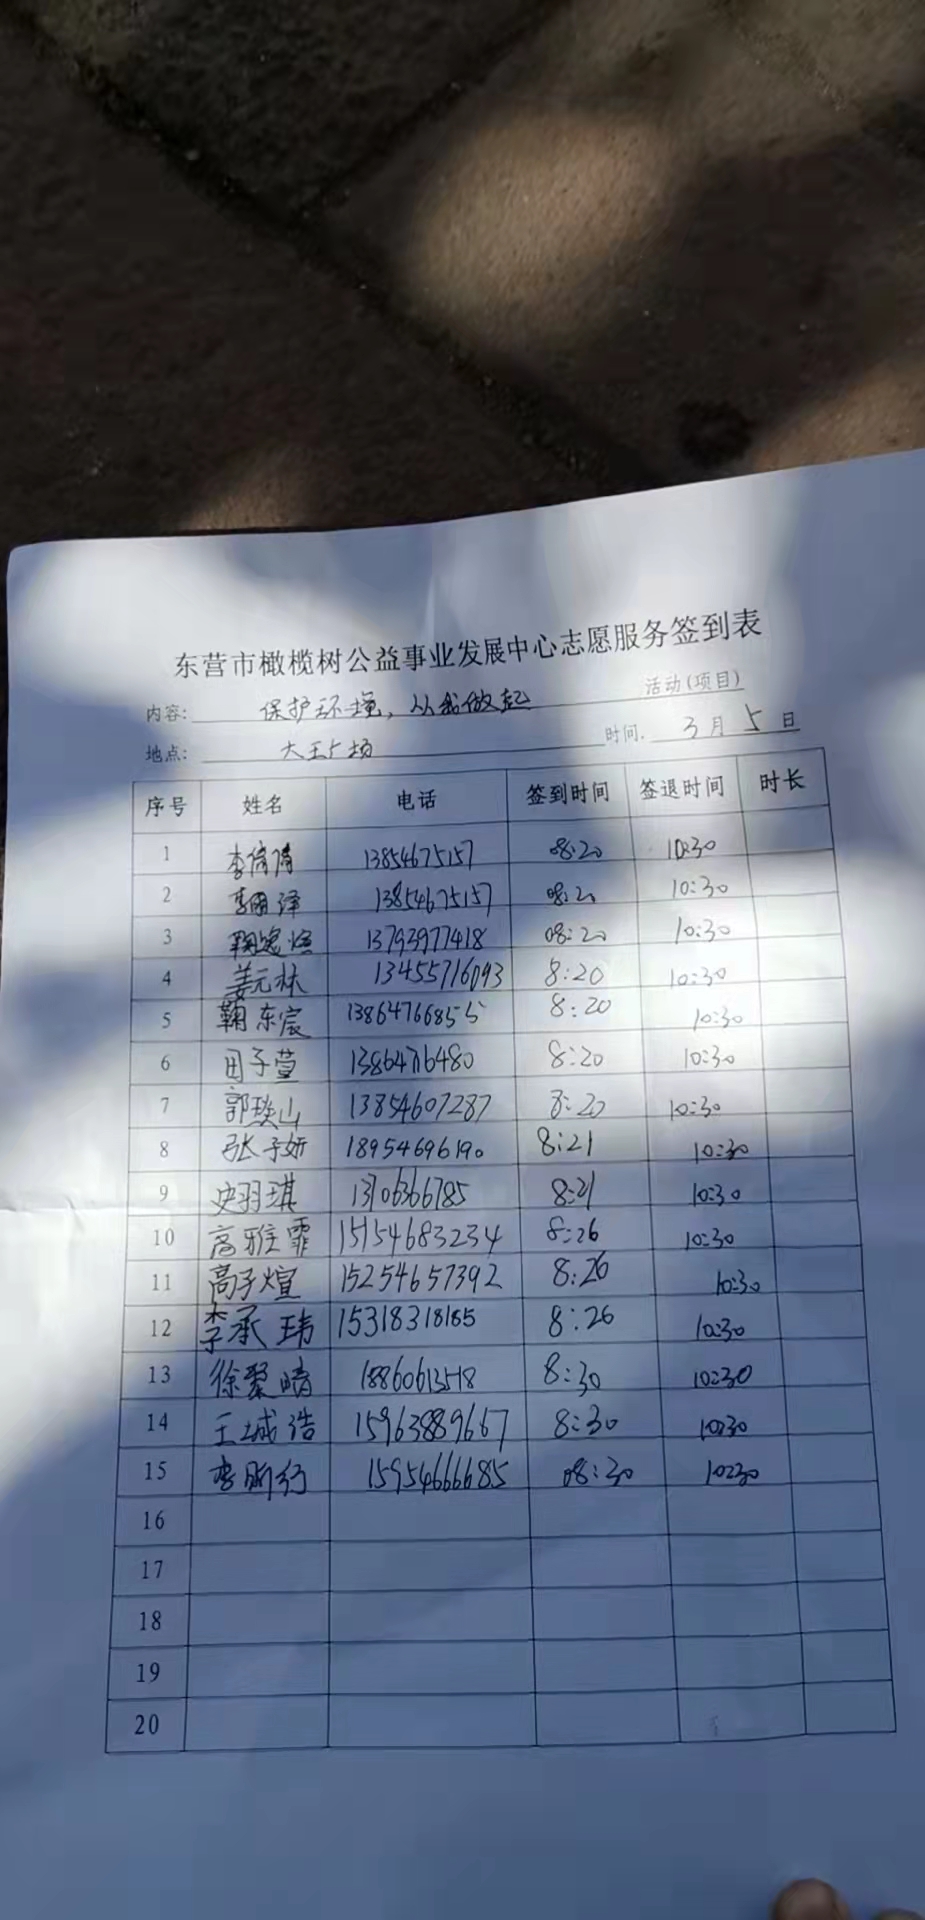 东营市橄榄树公益事业发展中心志愿服务签到表
内容: 保护环境，从我做起 活动(项目)
地点: 大王广场 时间. 3月5日
序号 姓名 电话 签到时间 签退时间 时长
1 李倩倩 13854675157 08:20 10:30
2 13854675157 08:20 10:30
3 鞠逸煊 13793977418 08:20 10:30
4 姜元林 13455716093 8:20 10:30
5 鞠东宸 13864766855 8:20 10:30
6 田子萱 13864716480 8:20 10:30
7 郭琰山 13854607287 8:20 10:30
8 张子妍 18954696190 8:21 10:30
9 史羽琪 13706366785 8:21 10:30
10 高雅霏 15154683234 8:26 10:30
11 高子煊 15254657392 8:26 10:30
12 李承玮 15318318165 8:26 10:30
13 徐聚晴 8:30 10:30
14 王城浩 15963889667 8:30 10:30
15 李 15954666685 08:30 10:30
16
17
18
19
20